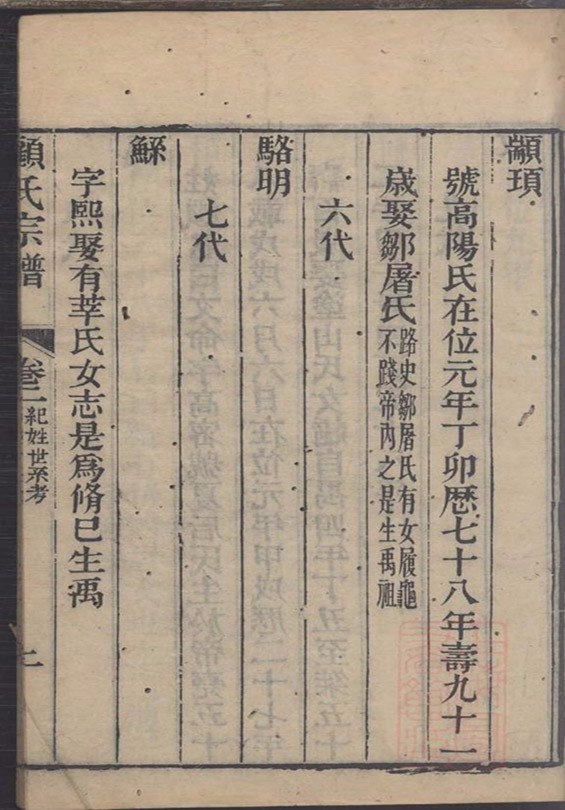 顓頊
號高陽氏在位元年丁卯歷七十八年壽九十一
歲娶鄒屠氏
路史鄒屠氏有女履龜
不踐帝內之是生禹祖
六代
駱明
七代
鯀
字熙娶有莘氏女志是爲脩巳生禹
顧氏宗譜
卷二
紀姓世系考
二